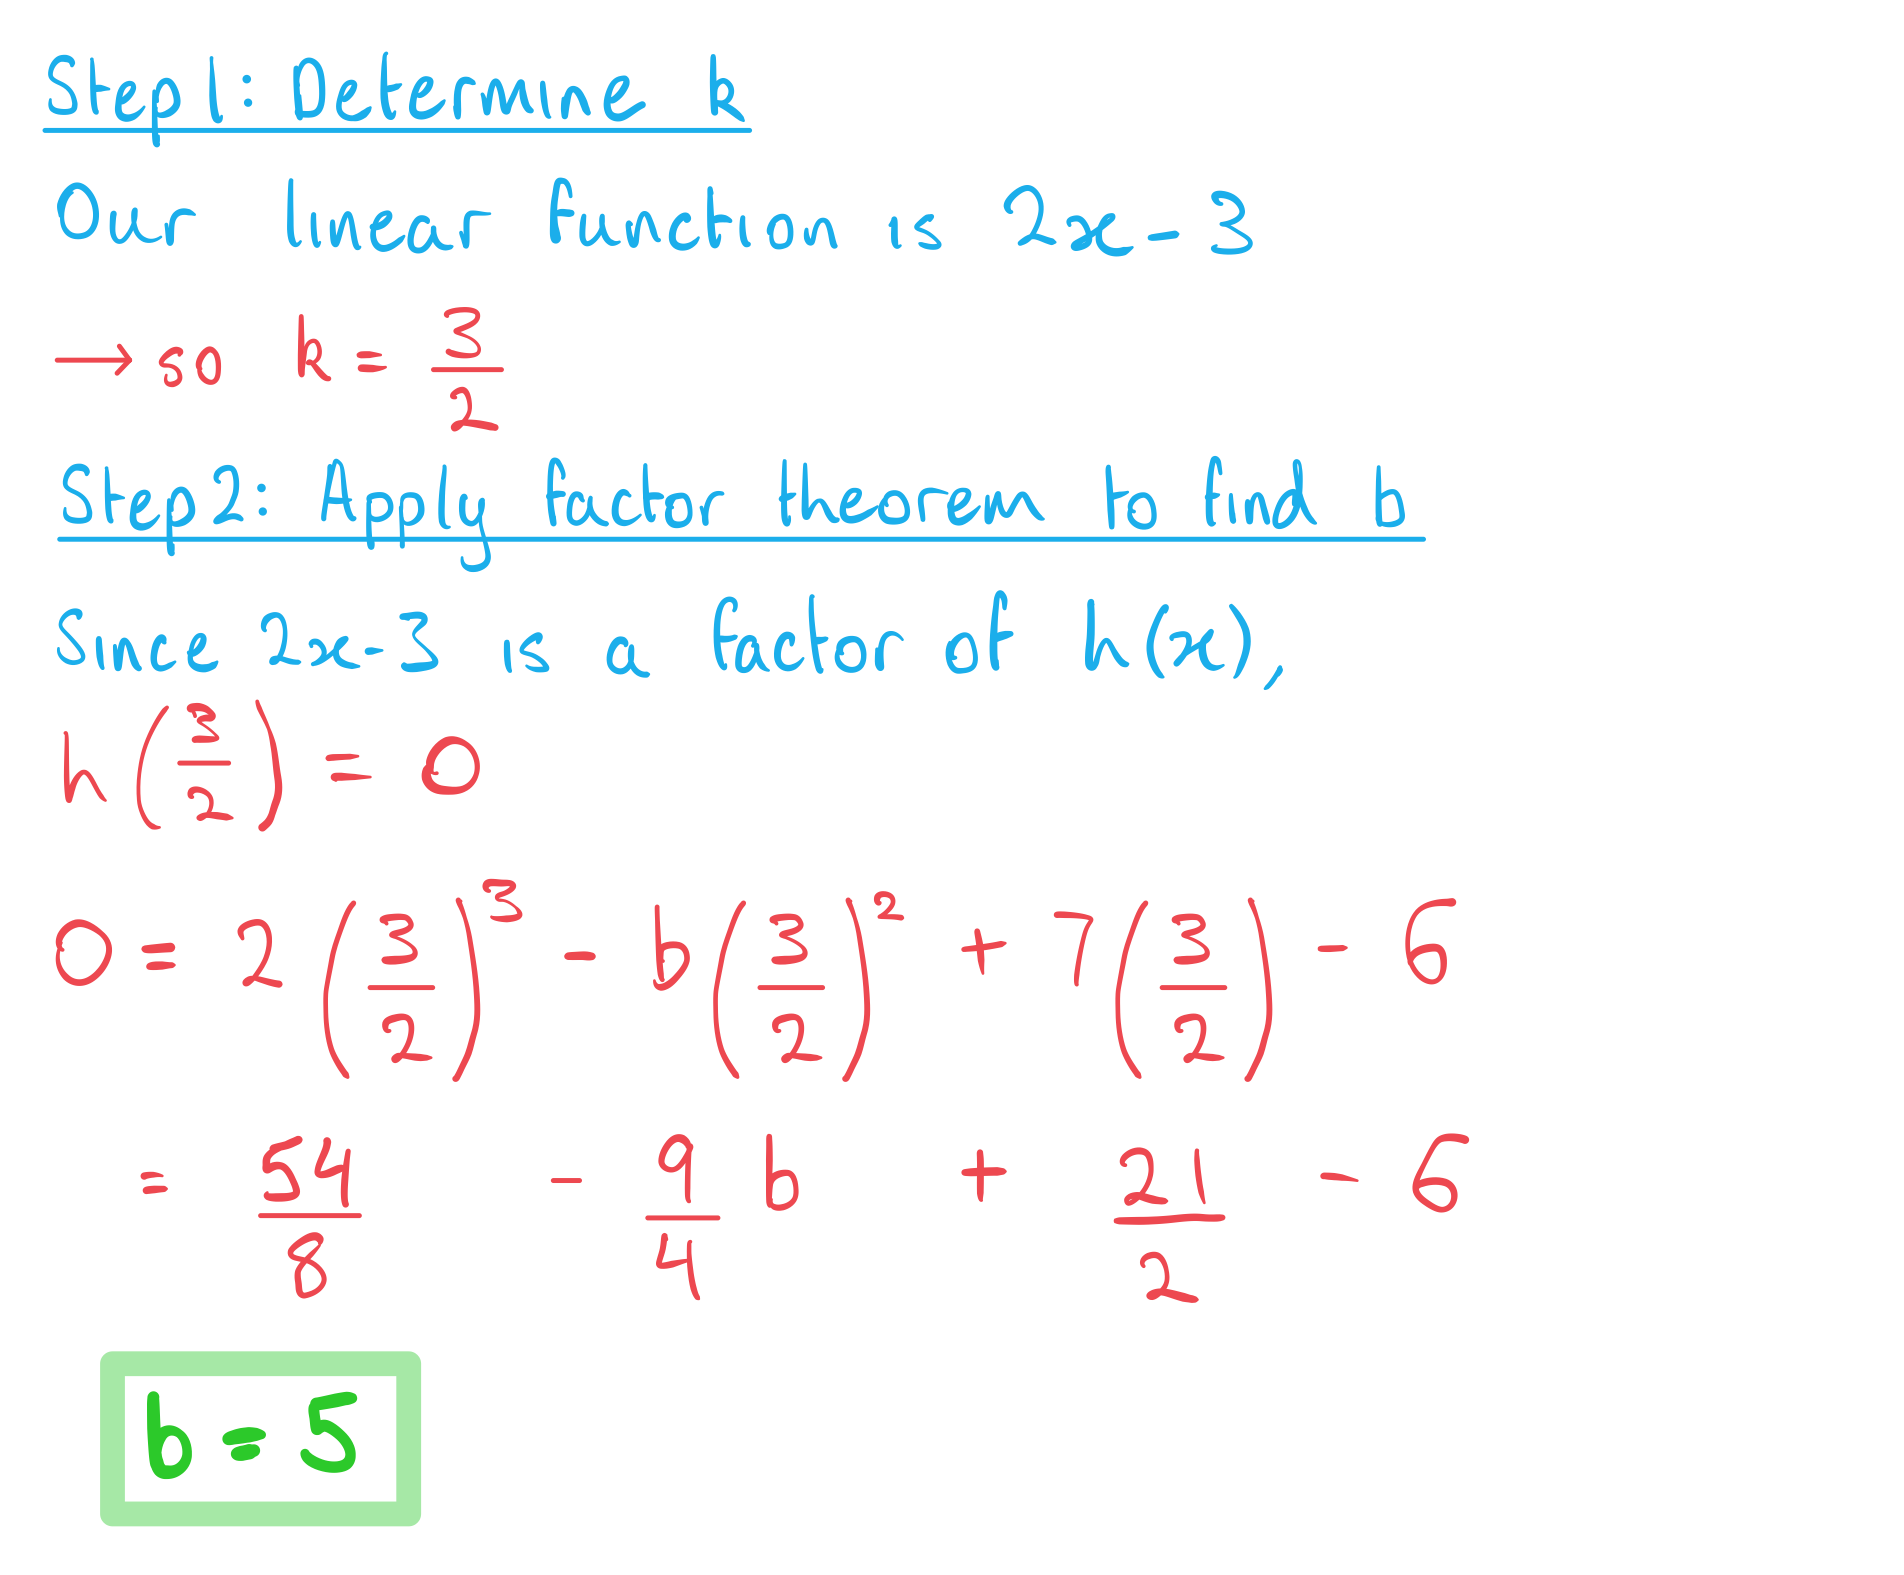 Step 1: Determine k
Our linear function is 2x - 3
→ so k = 3/2
Step 2: Apply factor theorem to find b
Since 2x - 3 is a factor of h(x),
h(3/2) = 0
0 = 2(3/2)³ - b(3/2)² + 7(3/2) - 6
= 54/8 - 9/4 b + 21/2 - 6
b = 5